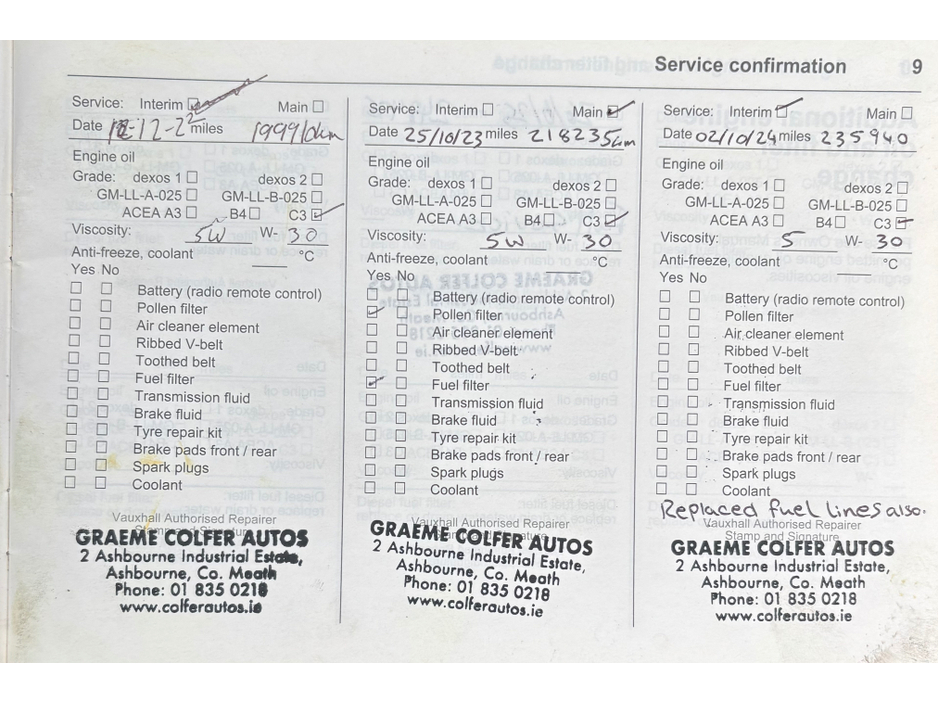 Service confirmation 9
Service: Interim Main
Date 12-12-22 miles 199910km
Engine oil
Grade: dexos 1 dexos 2
GM-LL-A-025 GM-LL-B-025
ACEA A3 B4 C3
Viscosity: 5W W- 30
Anti-freeze, coolant °C
Yes No
Battery (radio remote control)
Pollen filter
Air cleaner element
Ribbed V-belt
Toothed belt
Fuel filter
Transmission fluid
Brake fluid
Tyre repair kit
Brake pads front / rear
Spark plugs
Coolant
Vauxhall Authorised Repairer
Stamp and Signature
GRAEME COLFER AUTOS
2 Ashbourne Industrial Estate,
Ashbourne, Co. Meath
Phone: 01 835 0218
www.colferautos.ie
Service: Interim Main
Date 25/10/23 miles 218235km
Engine oil
Grade: dexos 1 dexos 2
GM-LL-A-025 GM-LL-B-025
ACEA A3 B4 C3
Viscosity: 5W W- 30
Anti-freeze, coolant °C
Yes No
Battery (radio remote control)
Pollen filter
Air cleaner element
Ribbed V-belt
Toothed belt
Fuel filter
Transmission fluid
Brake fluid
Tyre repair kit
Brake pads front / rear
Spark plugs
Coolant
Vauxhall Authorised Repairer
Stamp and Signature
GRAEME COLFER AUTOS
2 Ashbourne Industrial Estate,
Ashbourne, Co. Meath
Phone: 01 835 0218
www.colferautos.ie
Service: Interim Main
Date 02/10/24 miles 235940
Engine oil
Grade: dexos 1 dexos 2
GM-LL-A-025 GM-LL-B-025
ACEA A3 B4 C3
Viscosity: 5 W- 30
Anti-freeze, coolant °C
Yes No
Battery (radio remote control)
Pollen filter
Air cleaner element
Ribbed V-belt
Toothed belt
Fuel filter
Transmission fluid
Brake fluid
Tyre repair kit
Brake pads front / rear
Spark plugs
Coolant
Replaced fuel lines also.
Vauxhall Authorised Repairer
Stamp and Signature
GRAEME COLFER AUTOS
2 Ashbourne Industrial Estate,
Ashbourne, Co. Meath
Phone: 01 835 0218
www.colferautos.ie